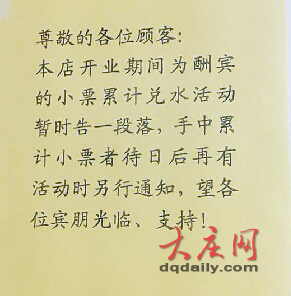 尊敬的各位顾客:
本店开业期间为酬宾
的小票累计兑水活动
暂时告一段落，手中累
计小票者待日后再有
活动时另行通知，望各
位宾朋光临、支持！
大庆网
dqdaily.com